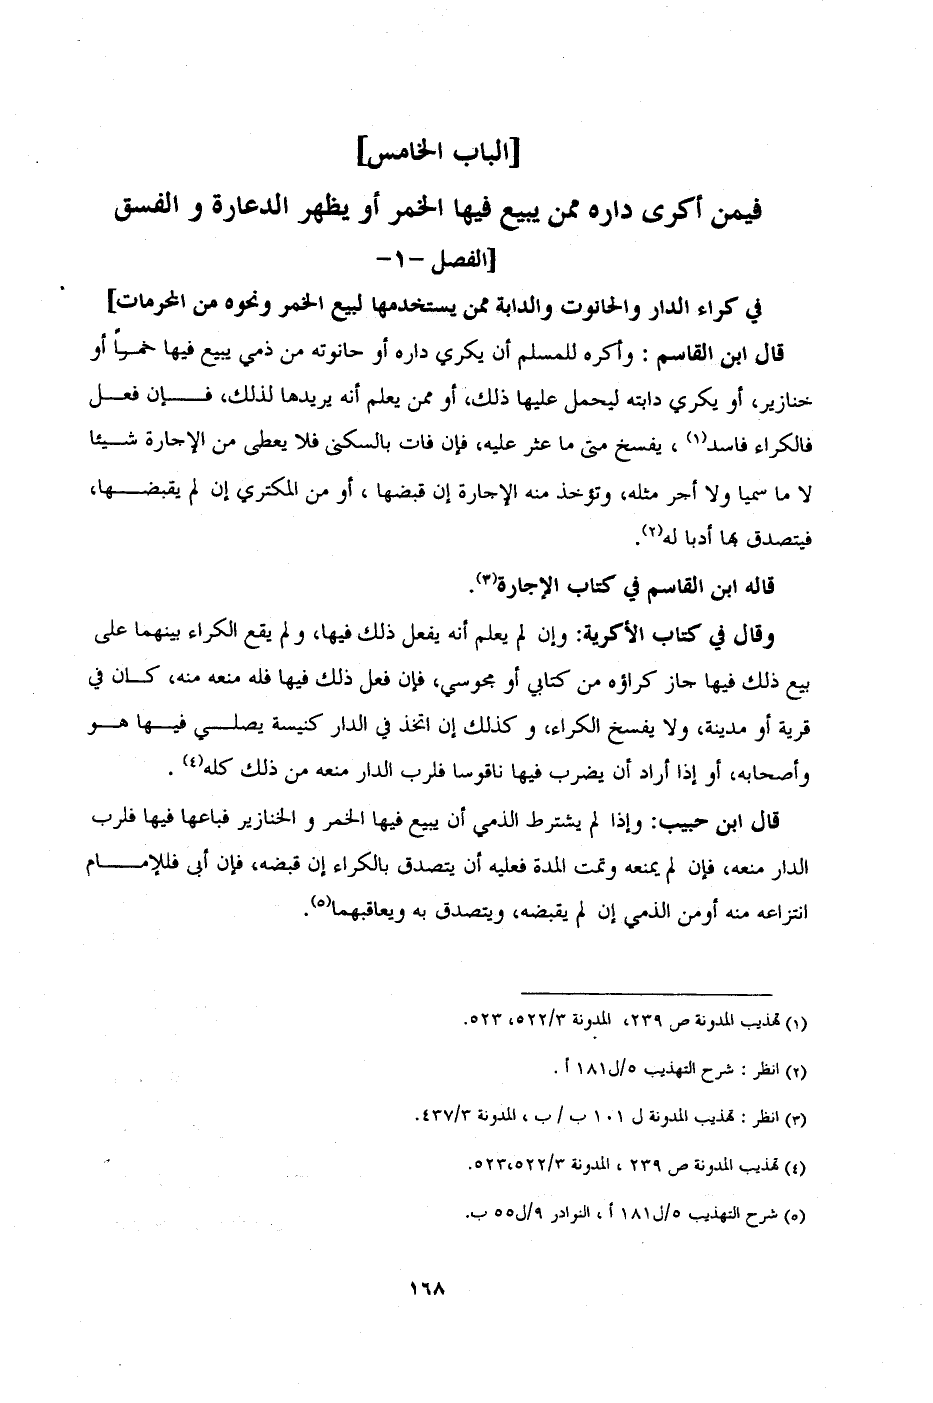 [الباب الخامس]
فيمن أكرى داره ممن يبيع فيها الخمر أو يظهر الدعارة و الفسق
[الفصل -١-
في كراء الدار والحانوت والدابة ممن يستخدمها لبيع الخمر ونحوه من المحرمات]
قال ابن القاسم : وأكره للمسلم أن يكري داره أو حانوته من ذمي يبيع فيها خمراً أو
خنازير، أو يكري دابته ليحمل عليها ذلك، أو ممن يعلم أنه يريدها لذلك، فإن فعل
فالكراء فاسد(١) ، يفسخ متى ما عثر عليه، فإن فات بالسكنى فلا يعطى من الإجارة شيئا
لا ما سميا ولا أجر مثله، وتؤخذ منه الإجارة إن قبضها ، أو من المكتري إن لم يقبضها،
فيتصدق بها أدبا له(٢).
قاله ابن القاسم في كتاب الإجارة(٣).
وقال في كتاب الأكرية: وإن لم يعلم أنه يفعل ذلك فيها، ولم يقع الكراء بينهما على
بيع ذلك فيها جاز كراؤه من كتابي أو مجوسي، فإن فعل ذلك فيها فله منعه منه، كان في
قرية أو مدينة، ولا يفسخ الكراء، و كذلك إن اتخذ في الدار كنيسة يصلي فيها هو
وأصحابه، أو إذا أراد أن يضرب فيها ناقوسا فلرب الدار منعه من ذلك كله(٤) .
قال ابن حبيب: وإذا لم يشترط الذمي أن يبيع فيها الخمر و الخنازير فباعها فيها فلرب
الدار منعه، فإن لم يمنعه وتمت المدة فعليه أن يتصدق بالكراء إن قبضه، فإن أبى فللإمام
انتزاعه منه أومن الذمي إن لم يقبضه، ويتصدق به ويعاقبهما(٥).
(١) تهذيب المدونة ص ٢٣٩، المدونة ٥٢٢/٣، ٥٢٣.
(٢) انظر : شرح التهذيب ٥/ل١٨١ أ .
(٣) انظر : تهذيب المدونة ل ١٠١ ب / ب ، المدونة ٤٣٧/٣.
(٤) تهذيب المدونة ص ٢٣٩ ، المدونة ٥٢٢/٣،٥٢٣.
(٥) شرح التهذيب ٥/ل١٨١ أ ، النوادر ٩/ل٥٥ ب.
١٦٨